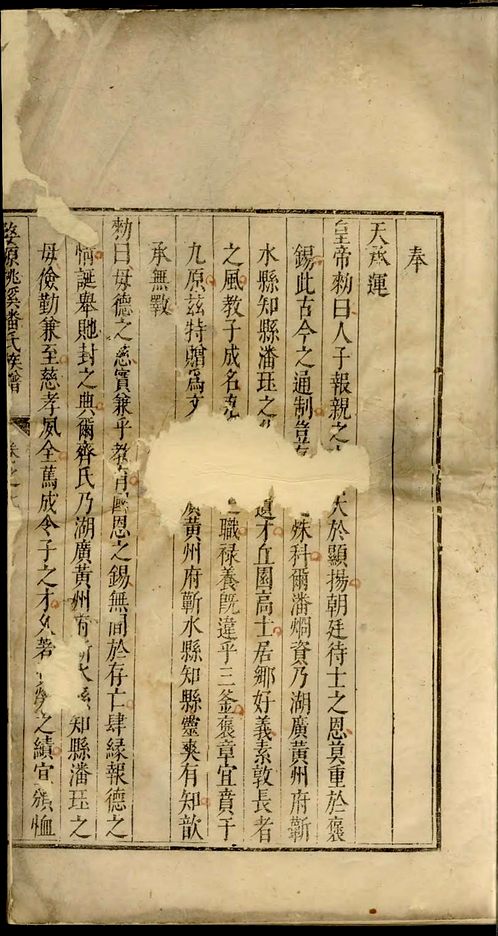 奉
天承運
皇帝勑曰人子報親之大於顯揚朝廷待士之恩莫重於褒
錫此古今之通制豈殊科爾潘烱資乃湖廣黃州府蘄
水縣知縣潘珏之遺才丘園高士居鄉好義素敦長者
之風教子成名克職禄養既違乎三釜褒章宜賁于
九原兹特贈爲文黃州府蘄水縣知縣靈爽有知歆
承無斁
勑曰母德之慈實兼乎教育國恩之錫無間於存亡肆緣報德之
情誕舉貤封之典爾齊氏乃湖廣黃州府蘄水縣知縣潘珏之
母儉勤兼至慈孝夙全篤成令子之才久著之績宜頒恤
婺源桃溪潘氏族譜
卷之